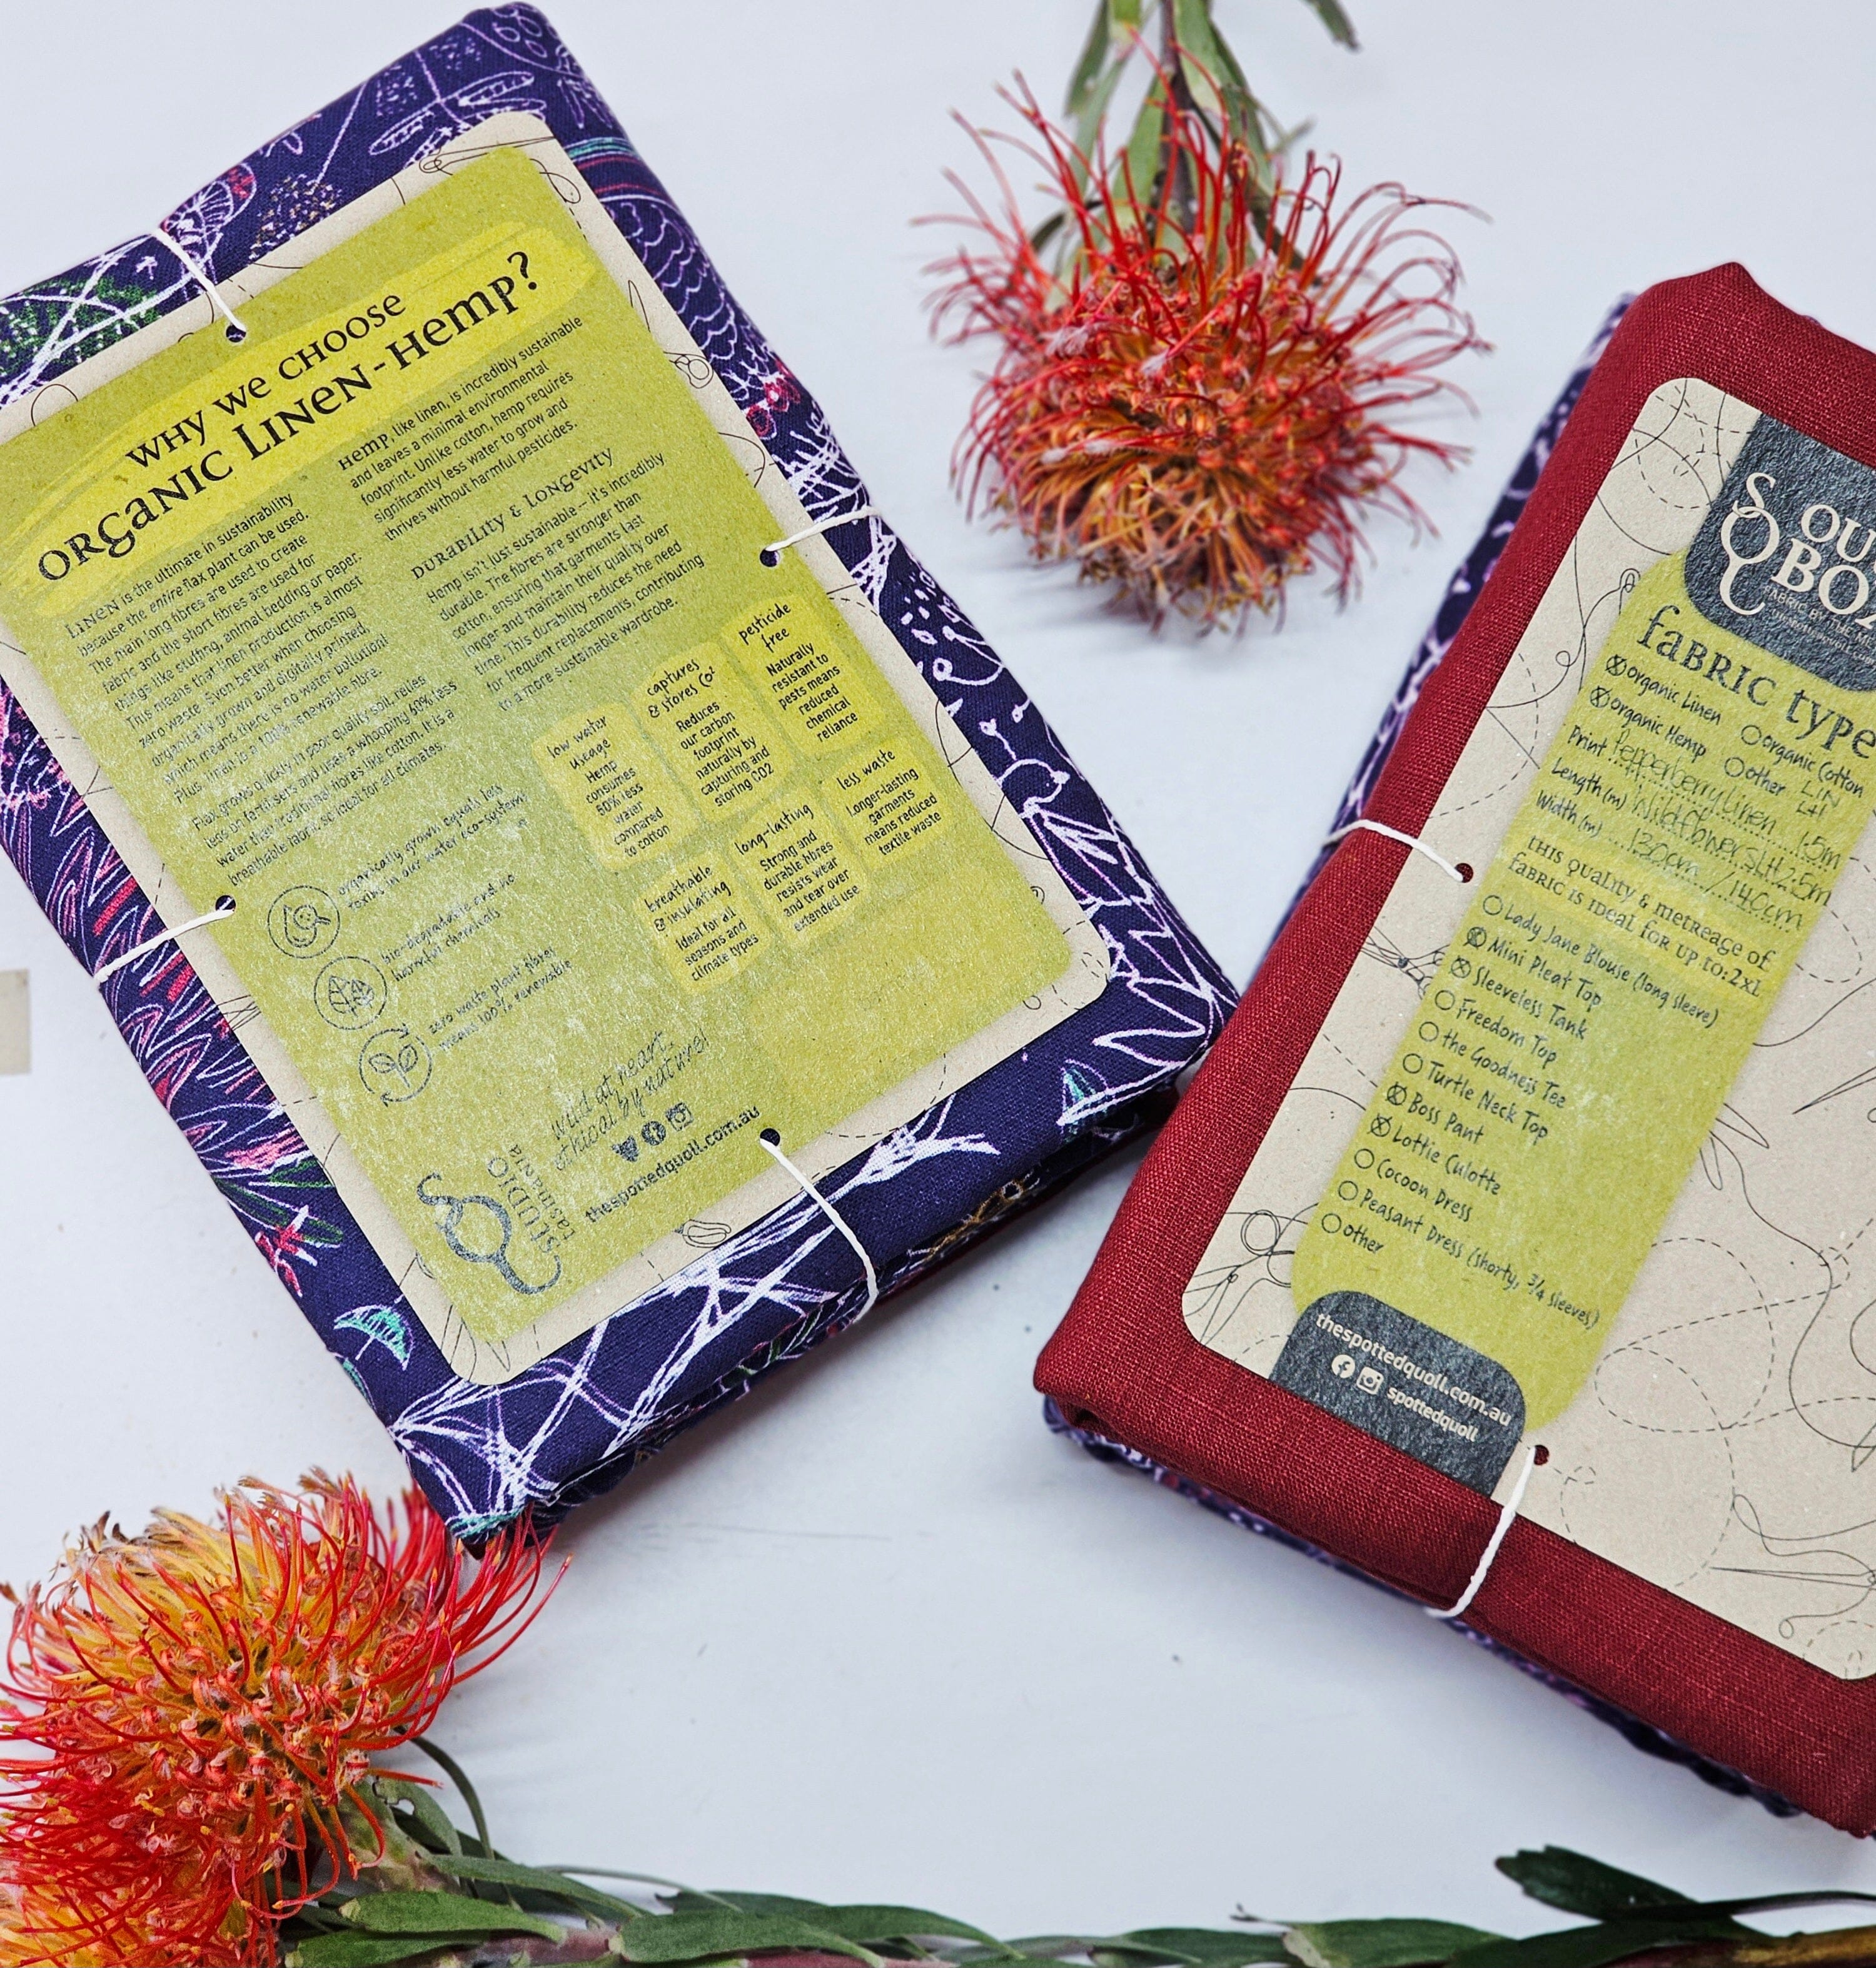 WHY WE CHOOSE
ORGANIC LINEN-HEMP?
LINEN is the ultimate in sustainability
because the entire flax plant can be used.
The main long fibres are used to create
fabric and the short fibres are used for
things like stuffing, animal bedding or paper.
This means that linen production is almost
zero waste. Even better when choosing
organically grown and digitally printed,
which means there is no water pollution!
Plus, linen is a 100% renewable fibre.
Flax grows quickly in poor quality soil, relies
less on fertilisers and uses a whopping 60% less
water than traditional fibres like cotton. It is a
breathable fabric, so ideal for all climates.
organically grown equals less
toxins in our water eco-systems
bio-degradable and no
harmful chemicals
zero waste plant fibre
means 100% renewable
Hemp, like linen, is incredibly sustainable
and leaves a minimal environmental
footprint. Unlike cotton, hemp requires
significantly less water to grow and
thrives without harmful pesticides.
DURABILITY & LONGEVITY
Hemp isn't just sustainable – it's incredibly
durable. The fibres are stronger than
cotton, ensuring that garments last
longer and maintain their quality over
time. This durability reduces the need
for frequent replacements, contributing
to a more sustainable wardrobe.
low water
usage
Hemp
consumes
60% less
water
compared
to cotton
captures
& stores CO²
Reduces
our carbon
footprint
naturally by
capturing and
storing CO2
pesticide
free
Naturally
resistant to
pests means
reduced
chemical
reliance
breathable
& insulating
Ideal for all
seasons and
climate types
long-lasting
Strong and
durable fibres
resists wear
and tear over
extended use
less waste
Longer-lasting
garments
means reduced
textile waste
STUDIO
tasmania
wild at heart,
ethical by nature!
thespottedquoll.com.au
SQ
OU
BO
FABRIC BY THE
FABRIC TYPE
organic Linen
organic Cotton
organic Hemp
other LIN
Print Pepperberry linen 1.5m
Length (m) Wildflowers LH 2.5m
Width (m) 130cm / 140cm
THIS QUALITY & METREAGE OF
FABRIC IS IDEAL FOR UP TO: 2XL
Lady Jane Blouse (long sleeve)
Mini Pleat Top
Sleeveless Tank
Freedom Top
the Goodness Tee
Turtle Neck Top
Boss Pant
Lottie Culotte
Cocoon Dress
Peasant Dress (shorty, 3/4 sleeves)
other
thespottedquoll.com.au
spottedquoll